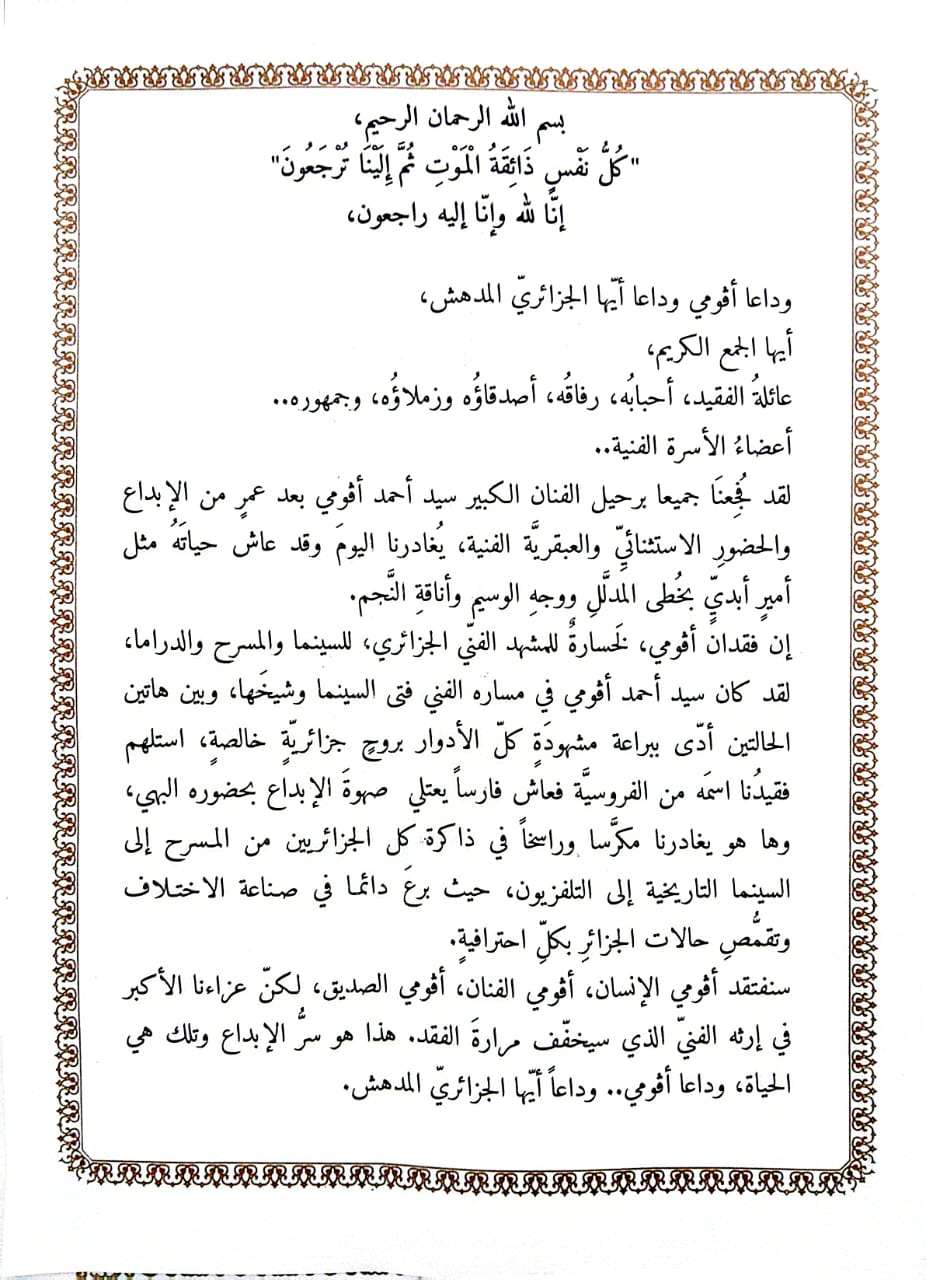 بسم الله الرحمان الرحيم،
"كُلُّ نَفْسٍ ذَائِقَةُ الْمَوْتِ ثُمَّ إِلَيْنَا تُرْجَعُونَ"
إنّا لله وإنّا إليه راجعون،
وداعا أڤومي وداعا أيّها الجزائريّ المدهش،
أيها الجمع الكريم،
عائلةُ الفقيد، أحبابُه، رفاقُه، أصدقاؤُه وزملاؤُه، وجمهوره..
أعضاءُ الأسرة الفنية..
لقد فُجِعنَا جميعا برحيل الفنان الكبير سيد أحمد أڤومي بعد عمرٍ من الإبداع
والحضورِ الاستثنائيِّ والعبقريَّة الفنية، يُغادرنا اليومَ وقد عاش حياتَهُ مثل
أميرٍ أبديٍّ بخُطى المدلَّلِ ووجهِ الوسيم وأناقةِ النَّجم.
إن فقدان أڤومي، لخَسارةٌ للمشهد الفنّي الجزائري، للسينما والمسرح والدراما،
لقد كان سيد أحمد أڤومي في مساره الفني فتى السينما وشيخَها، وبين هاتين
الحالتين أدّى ببراعة مشهودَةٍ كلّ الأدوار بروحٍ جزائريّةٍ خالصةٍ، استلهم
فقيدُنا اسمَه من الفروسيَّة فعاش فارساً يعتلي صهوةَ الإبداع بحضوره البهي،
وها هو يغادرنا مكرَّسا وراسخاً في ذاكرة كل الجزائريين من المسرح إلى
السينما التاريخية إلى التلفزيون، حيث برعَ دائما في صناعة الاختلاف
وتقمُّصِ حالات الجزائرِ بكلِّ احترافيةٍ.
سنفتقد أڤومي الإنسان، أڤومي الفنان، أڤومي الصديق، لكنّ عزاءنا الأكبر
في إرثه الفنيّ الذي سيخفّف مرارةَ الفقد. هذا هو سرُّ الإبداع وتلك هي
الحياة، وداعا أڤومي.. وداعاً أيّها الجزائريّ المدهش.